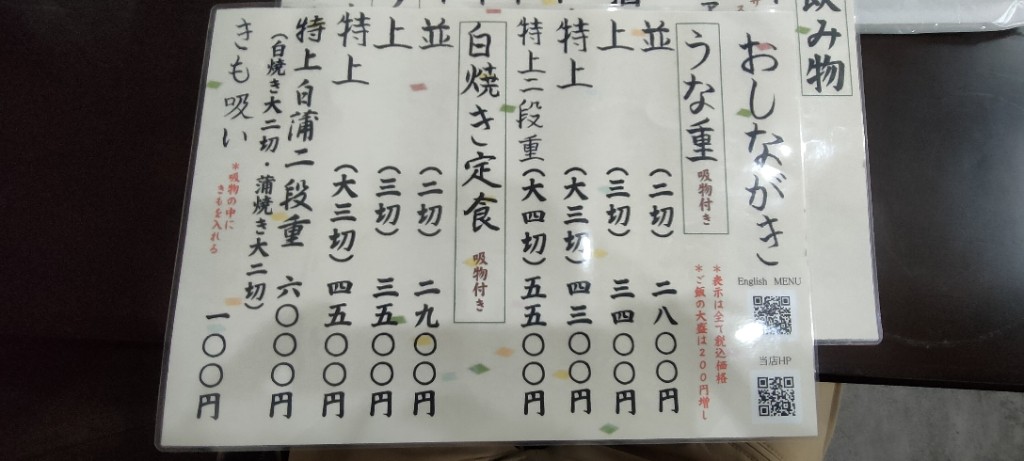 飲み物
おしながき
English MENU
当店HP
うな重 吸物付き
*表示は全て税込価格
*ご飯の大盛は200円増し
並 (二切) 二八〇〇円
上 (三切) 三四〇〇円
特上 (大三切) 四三〇〇円
特上二段重 (大四切) 五五〇〇円
白焼き定食 吸物付き
並 (二切) 二九〇〇円
上 (三切) 三五〇〇円
特上 (大三切) 四五〇〇円
特上白蒲二段重 六〇〇〇円
(白焼き大二切・蒲焼き大二切)
きも吸い 一〇〇円
*吸物の中に
きもを入れる